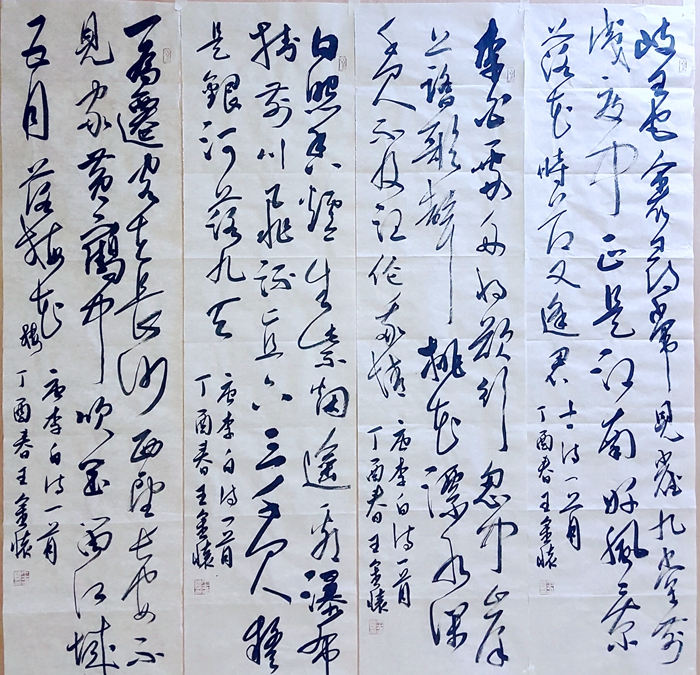 岐王宅里尋常見崔九堂前
几度闻正是江南好風景
落花時节又逢君
古诗一首
丁酉春王金懷
李白乘舟将欲行忽闻岸
上踏歌聲桃花潭水深
千尺不及汪伦我情
唐李白诗一首
丁酉春王金懷
日照香爐生紫烟遥看瀑布
挂前川飛流直下三千尺疑
是銀河落九天
唐李白诗一首
丁酉春王金懷
一為遷客去長沙西望长安不
見家黄鶴中吹玉笛江城
五月落梅花楼
唐李白诗一首
丁酉春王金懷